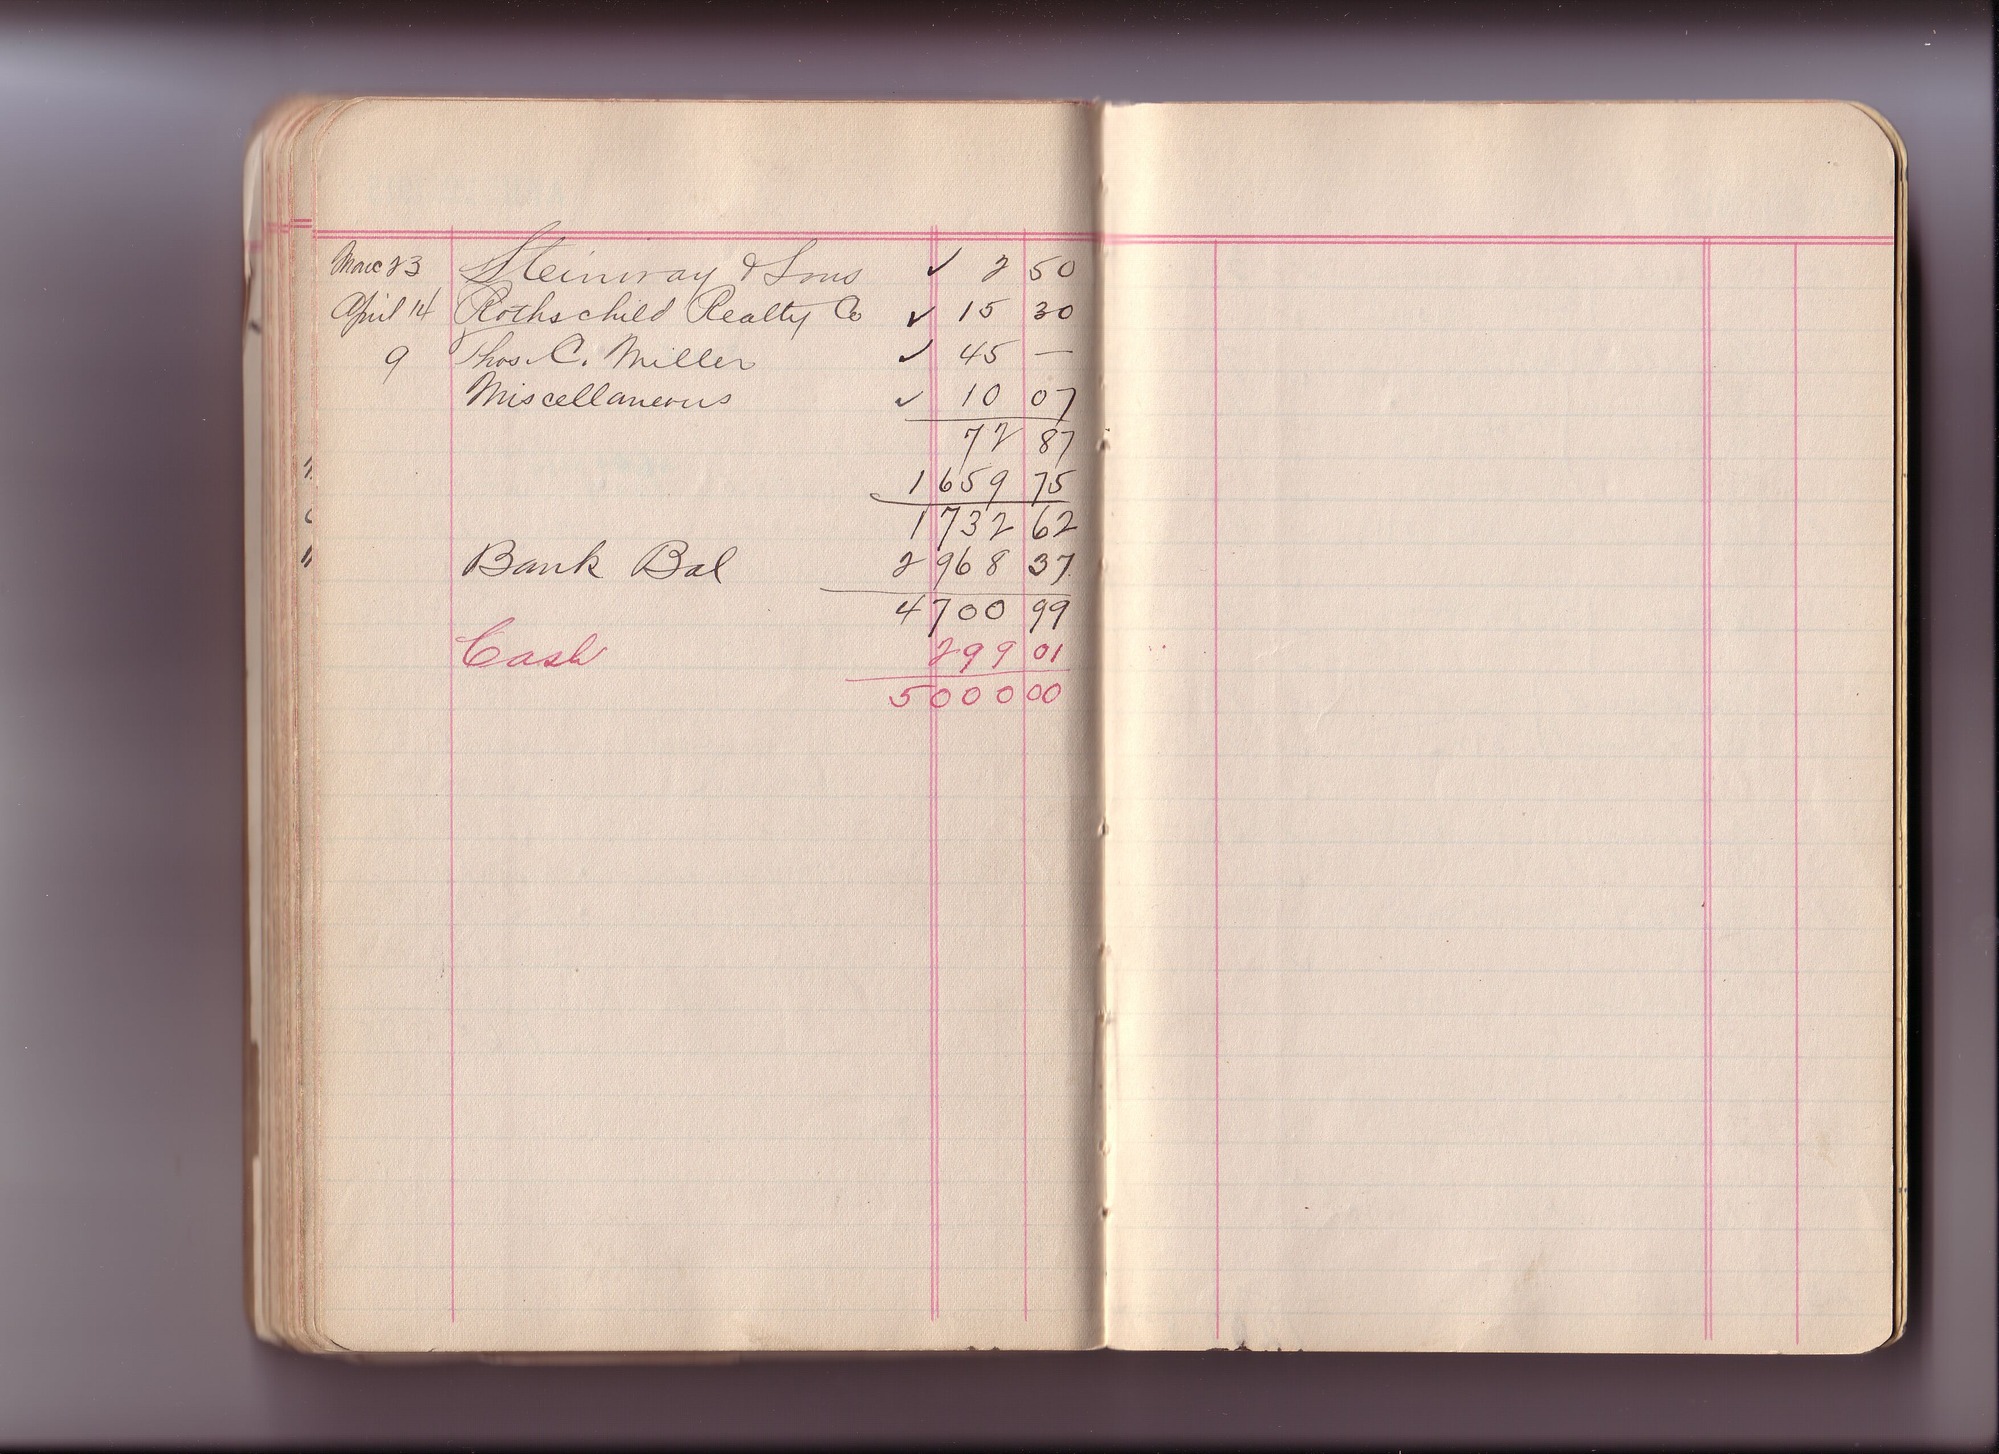 Marc 23 Steinway & Sons ✓ 2 50
April 14 Rothschild Realty Co ✓ 15 30
9 Thos. C. Miller ✓ 45 —
Miscellaneous ✓ 10 07
72 87
1659 75
1732 62
Bank Bal 2968 37
4700 99
Cash 299 01
5000 00